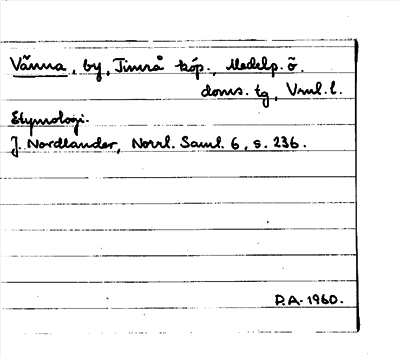 Vänna, by, Timrå köp., Medelp. ö.
doms. tg, Vrnl. l.
Etymologi.
J. Nordlander, Norrl. Saml. 6, s. 236.
D.A. 1960.